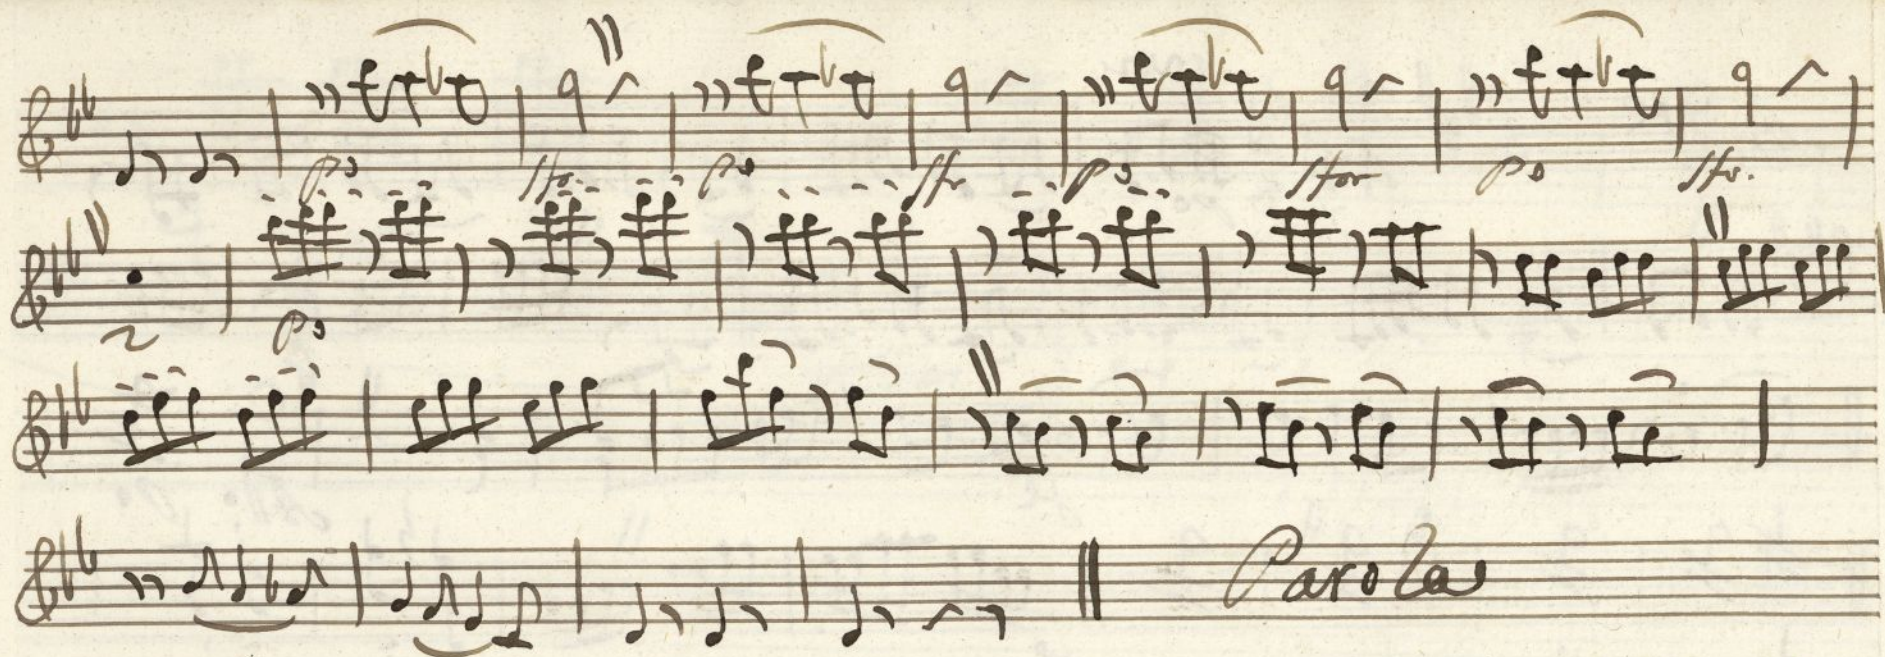 po sfr. po sfr po sfor po sfr.
2 po
Parola